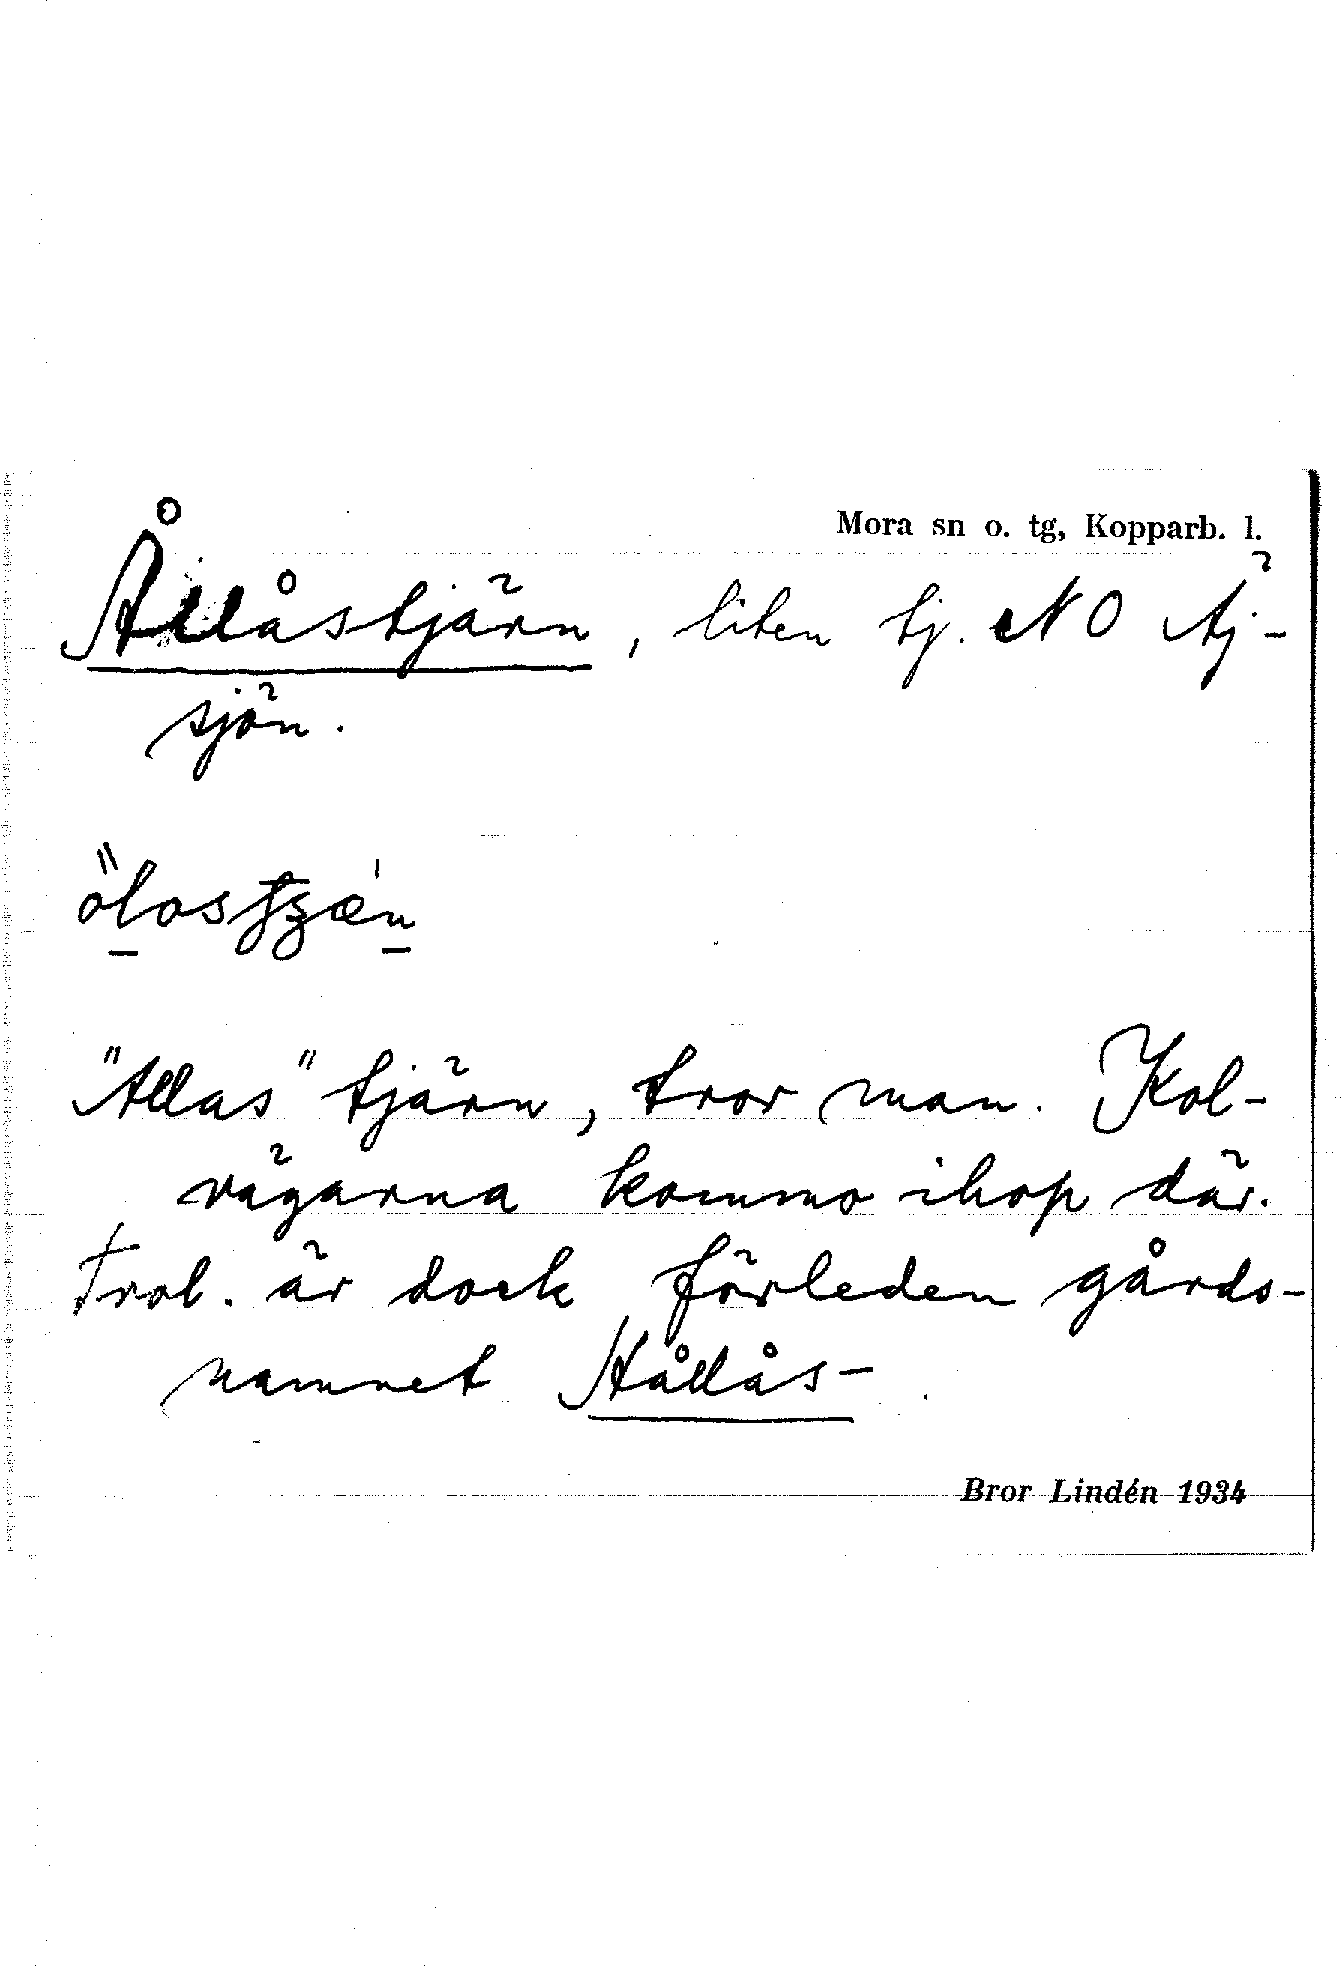 Mora sn o. tg, Kopparb. l.
Ållåstjärn, liten tj. NO Aj-
sjön.
"Allas" tjärn, tror man. Kol-
vägarna kommo ihop där.
Trol. är dock förleden gårds-
namnet Hållås-
Bror Lindén 1934